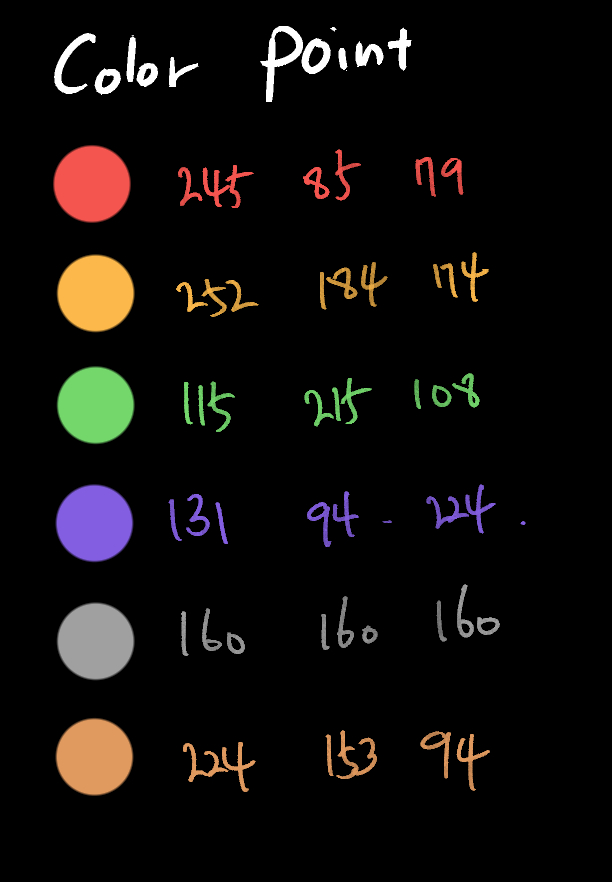 Color Point
245 85 79
252 184 74
115 215 108
131 94 - 224 .
160 160 160
224 153 94